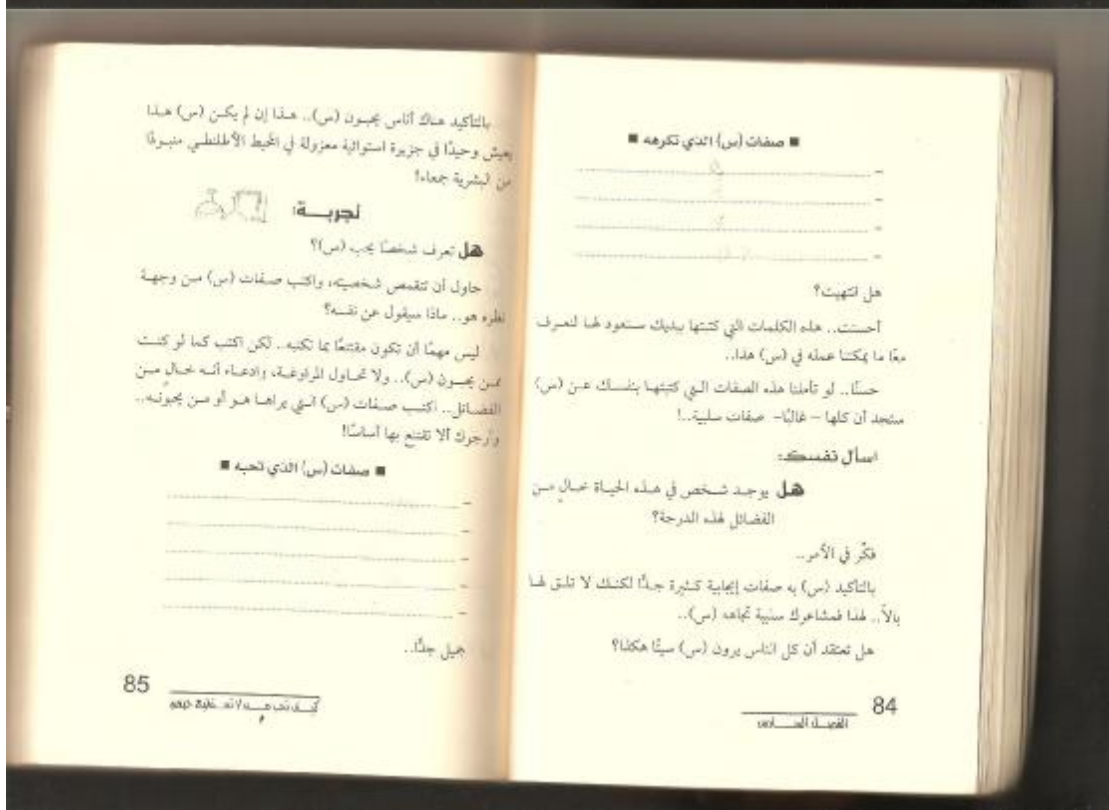 ■ صفات (س) الذي تكرهه ■
-
-
-
-
هل انتهيت؟
أحسنت.. هذه الكلمات التي كتبتها بيديك سنعود لها لنعرف
معًا ما يمكننا عمله في (س) هذا..
حسنًا.. لو تأملنا هذه الصفات التي كتبتها بنفسك عن (س)
سنجد أن كلها – غالبًا– صفات سلبية..!
اسأل نفسك:
هل يوجد شخص في هذه الحياة خالٍ من
الفضائل لهذه الدرجة؟
فكّر في الأمر..
بالتأكيد (س) به صفات إيجابية كثيرة جدًّا لكنك لا تلق لها
بالاً.. لهذا فمشاعرك سلبية تجاهه (س)..
هل تعتقد أن كل الناس يرون (س) سيئًا هكذا؟
84
الفصل السادس
بالتأكيد هناك أناس يحبون (س).. هذا إن لم يكن (س) هذا
يعيش وحيدًا في جزيرة استوائية معزولة في المحيط الأطلنطي منبوذًا
من البشرية جمعاء!
تجربة:
هل تعرف شخصًا يحب (س)؟
حاول أن تتقمص شخصيته، واكتب صفات (س) من وجهة
نظره هو.. ماذا سيقول عن نفسه؟
ليس مهمًا أن تكون مقتنعًا بما تكتبه.. لكن اكتب كما لو كنت
ممن يحبون (س).. ولا تحاول المراوغة، وادعاء أنه خالٍ من
الفضائل.. اكتب صفات (س) التي يراها هو أو من يحبونه..
وأرجوك ألا تقتنع بها أساسًا!
■ صفات (س) الذي تحبه ■
-
-
-
-
-
جميل جدًّا..
85
كيف تحب من لا تستطيع حبهم